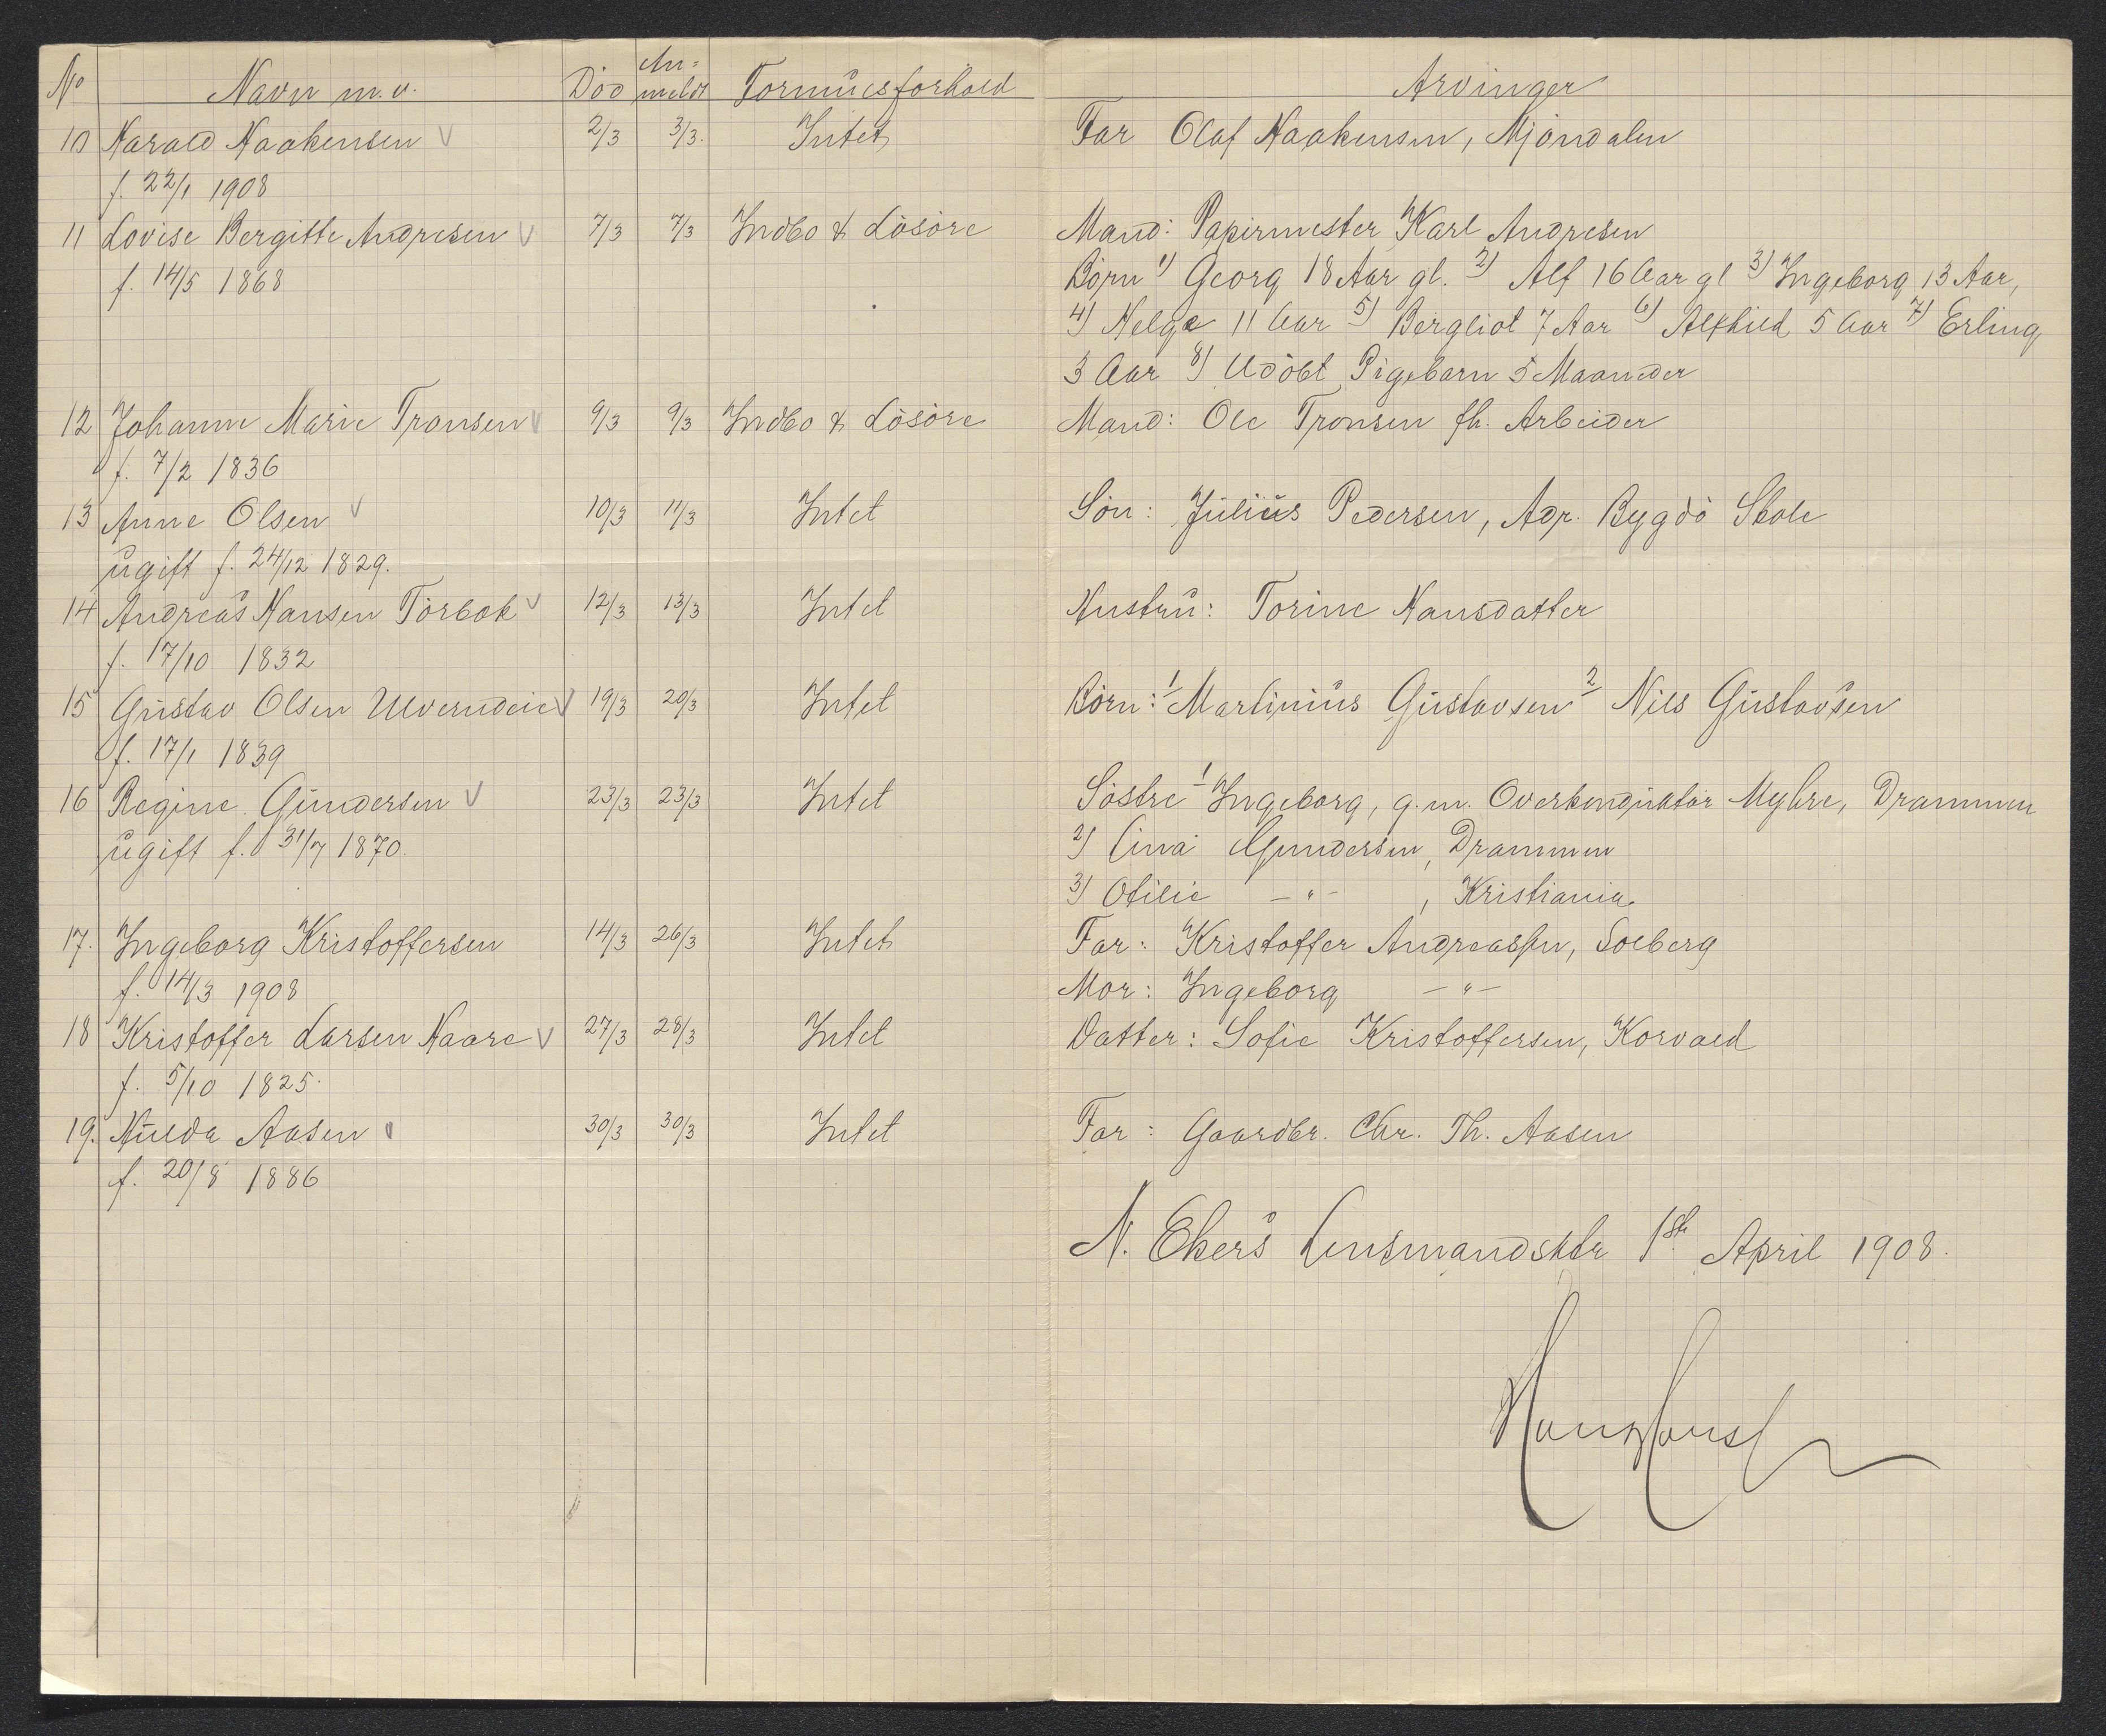 No Navn m.v. Död An= meldt Formuesforhold Arvinger
10 Harald Haakensen V 2/3 3/3. Intet Far Olaf Haakensen, Mjöndalen
f. 22/1 1908
11 Lovise Bergitte Andresen V 7/3 7/3 Indbo & Lösöre Mand: Papirmester Karl Andresen
f. 14/5 1868 Börn 1) Georg 18 Aar gl. 2) Alf 16 Aar gl 3) Ingeborg 13 Aar,
4) Helga 11 Aar 5) Bergliot 7 Aar 6) Alfhild 5 Aar 7) Erling
3 Aar 8) Udöbt Pigebarn 5 Maaneder
12 Johanne Marie Tronsen V 9/3 9/3 Indbo & Lösöre Mand: Ole Tronsen fh. Arbeider
f. 7/2 1836
13 Anne Olsen V 10/3 11/3 Intet Sön: Julius Pedersen, Adr. Bygdö Skole
ugift f. 24/12 1829.
14 Andreas Hansen Törbok V 12/3 13/3 Intet Hustru: Torine Hansdatter
f. 17/10 1832
15 Gustav Olsen Ulverudeie V 19/3 20/3 Intet Börn: 1 Martinius Gustavsen 2 Nils Gustavsen
f. 17/1 1839
16 Regine Gundersen V 23/3 23/3 Intet Söstre 1 Ingeborg, g.m. Overkonduktör Myhre, Drammen
ugift f. 31/7 1870. 2) Lina Gundersen, Drammen
3) Otilie -"- , Kristiania
17. Ingeborg Kristoffersen 14/3 26/3 Intet Far: Kristoffer Andreassen, Solberg
f. 14/3 1908 Mor: Ingeborg -"-
18 Kristoffer Larsen Haare V 27/3 28/3 Intet Datter: Sofie Kristoffersen, Korvald
f. 5/10 1825.
19. Hulda Aasen V 30/3 30/3 Intet Far: Gaardbr. Chr. Th. Aasen
f. 20/8 1886
N. Ekers Lensmandsktr 1st April 1908.